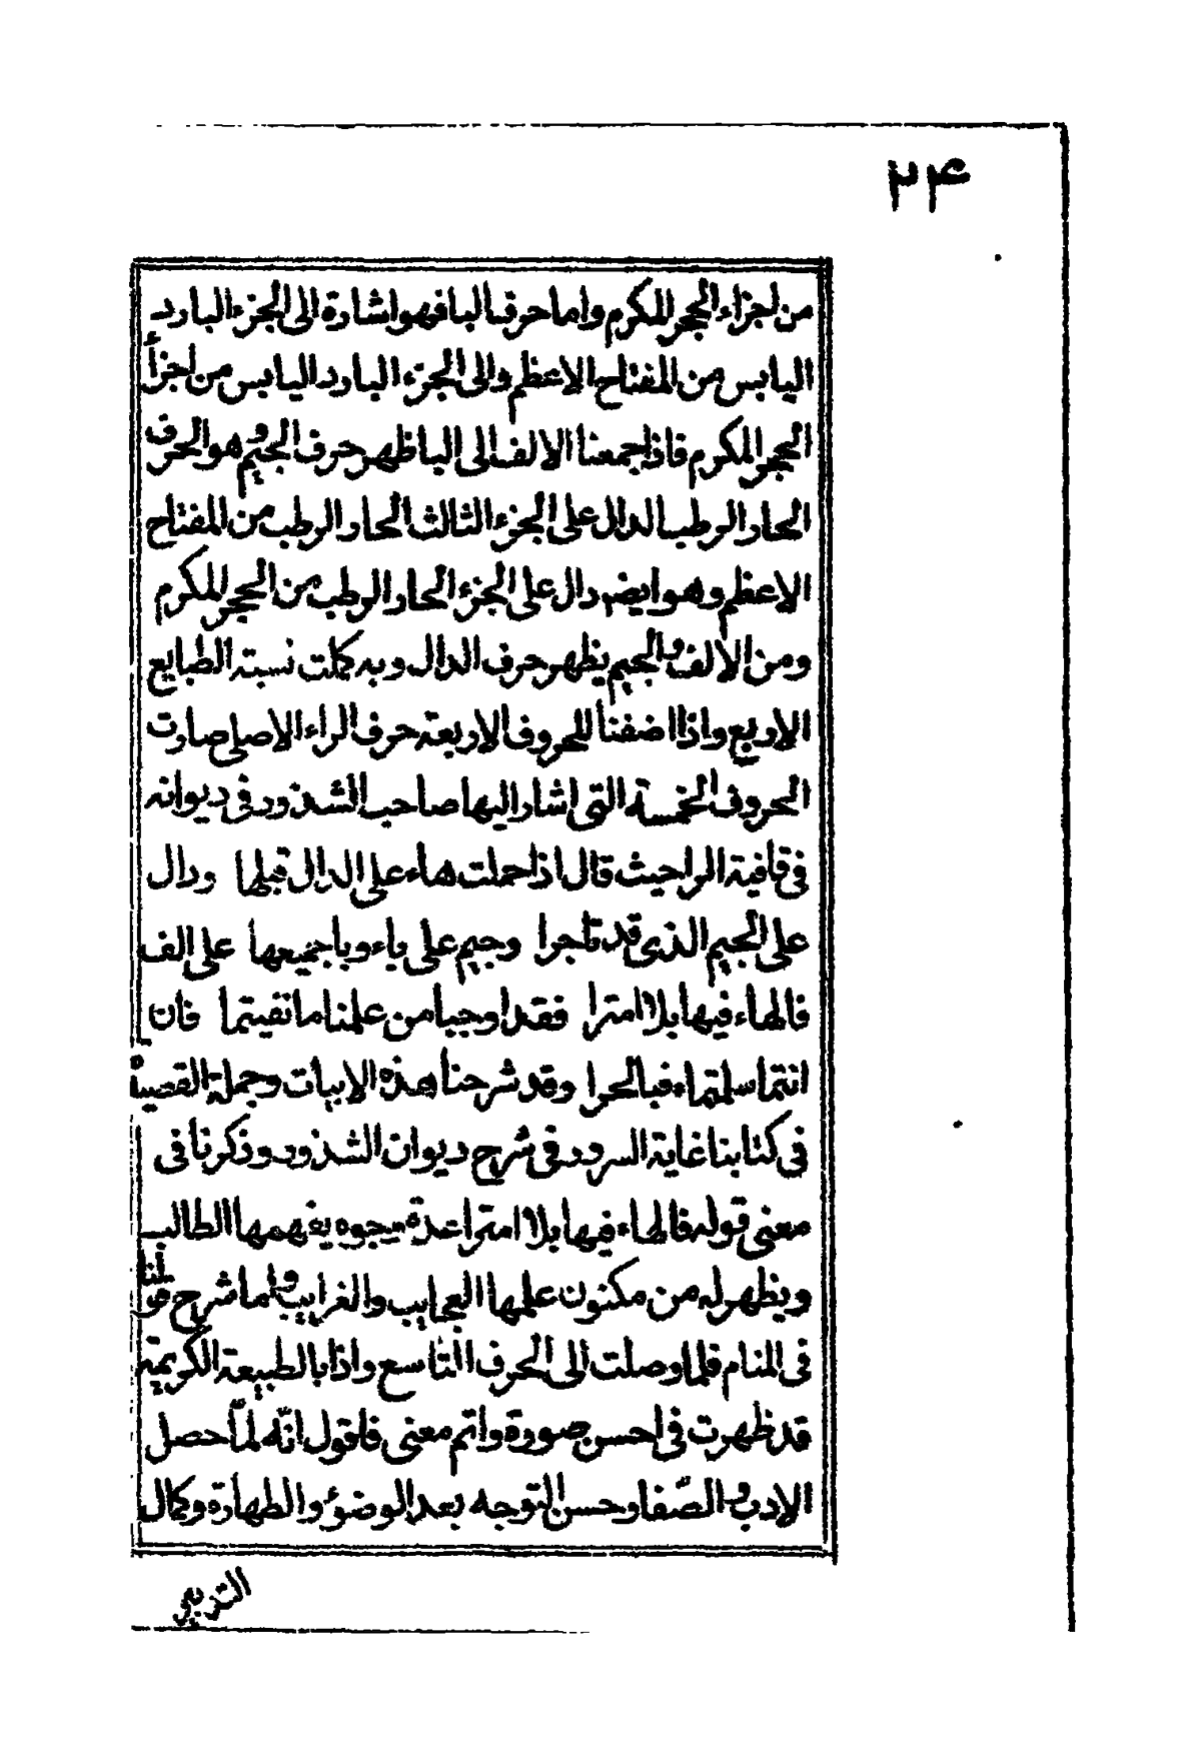 ۲۴
من اجزاء الحجر المكرم واما حرف البا فهو اشارة الى الجزء البارد
اليابس من المفتاح الاعظم والى الجزء البارد اليابس من اجزأ
الحجر المكرم فاذا جمعنا الالف الى البا ظهر حرف الجيم و هو الحرف
الحار الرطب الدال على الجزء الثالث الحار الرطب من المفتاح
الاعظم وهو ايضہ دال على الجزء الحار الرطب من الحجر المكرم
ومن الالف والجيم يظهر حرف الدال وبه كملت نسبته الطبايع
الاربع واذا اضفنا للحروف الاربعة حرف الراء الاصلى صارت
الحروف الخمسة التى اشار اليها صاحب الشذور فى ديوانه
فى قافية الرا حيث قال اذا حملت هاء على الدال قبلها ودال
على الجيم الذى قد تأجرا وجيم على باء وبا جميعها على الف
فالهاء فيها بلا امترا فقد اوجبا من علمنا ما نفيتما فان
انتما سلمتماء فبالحرا وقد شرحنا هذه الابيات وجملة القصيدة
فى كتابنا غاية السرور فى شرح ديوان الشذور وذكرنا فى
معنى قوله فالهاء فيها بلا امترا عدة وجوه يفهمها الطالب
ويظهر له من مكنون علمها العجايب والغرايب واما شرح قولنا
فى المنام فلما وصلت الى الحرف التاسع واذا بالطبيعة الكريمة
قد ظهرت فى احسن صورة واتم معنى فاقول انّه لمّا حصل
الادب والصّفا وحسن التوجه بعد الوضوء والطهارة وكمال